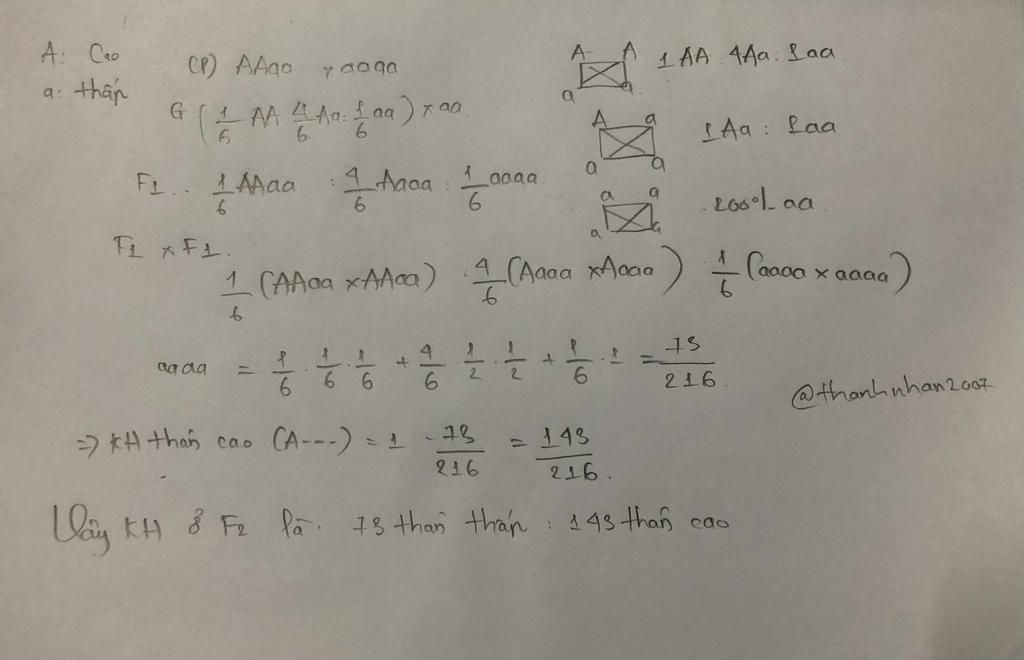 A: Cao
a: thấp
(P) AAaa x aaaa
G ( 1/6 AA 4/6 Aa : 1/6 aa ) x aa
F1 .. 1/6 AAaa : 4/6 Aaaa : 1/6 aaaa
A A
a a
1 AA : 4Aa : 1aa
A a
a a
1Aa : 1aa
a a
a a
100% aa
F1 x F1.
1/6 (AAaa x AAaa) : 4/6 (Aaaa x Aaaa) 1/6 (aaaa x aaaa)
aaaa = 1/6 . 1/6 . 1/6 + 4/6 . 1/2 . 1/2 + 1/6 . 1 = 73/216
@thanhnhan2007
=> KH thân cao (A---) = 1 - 73/216 = 143/216.
Vậy KH ở F2 là : 73 thân thấp : 143 thân cao